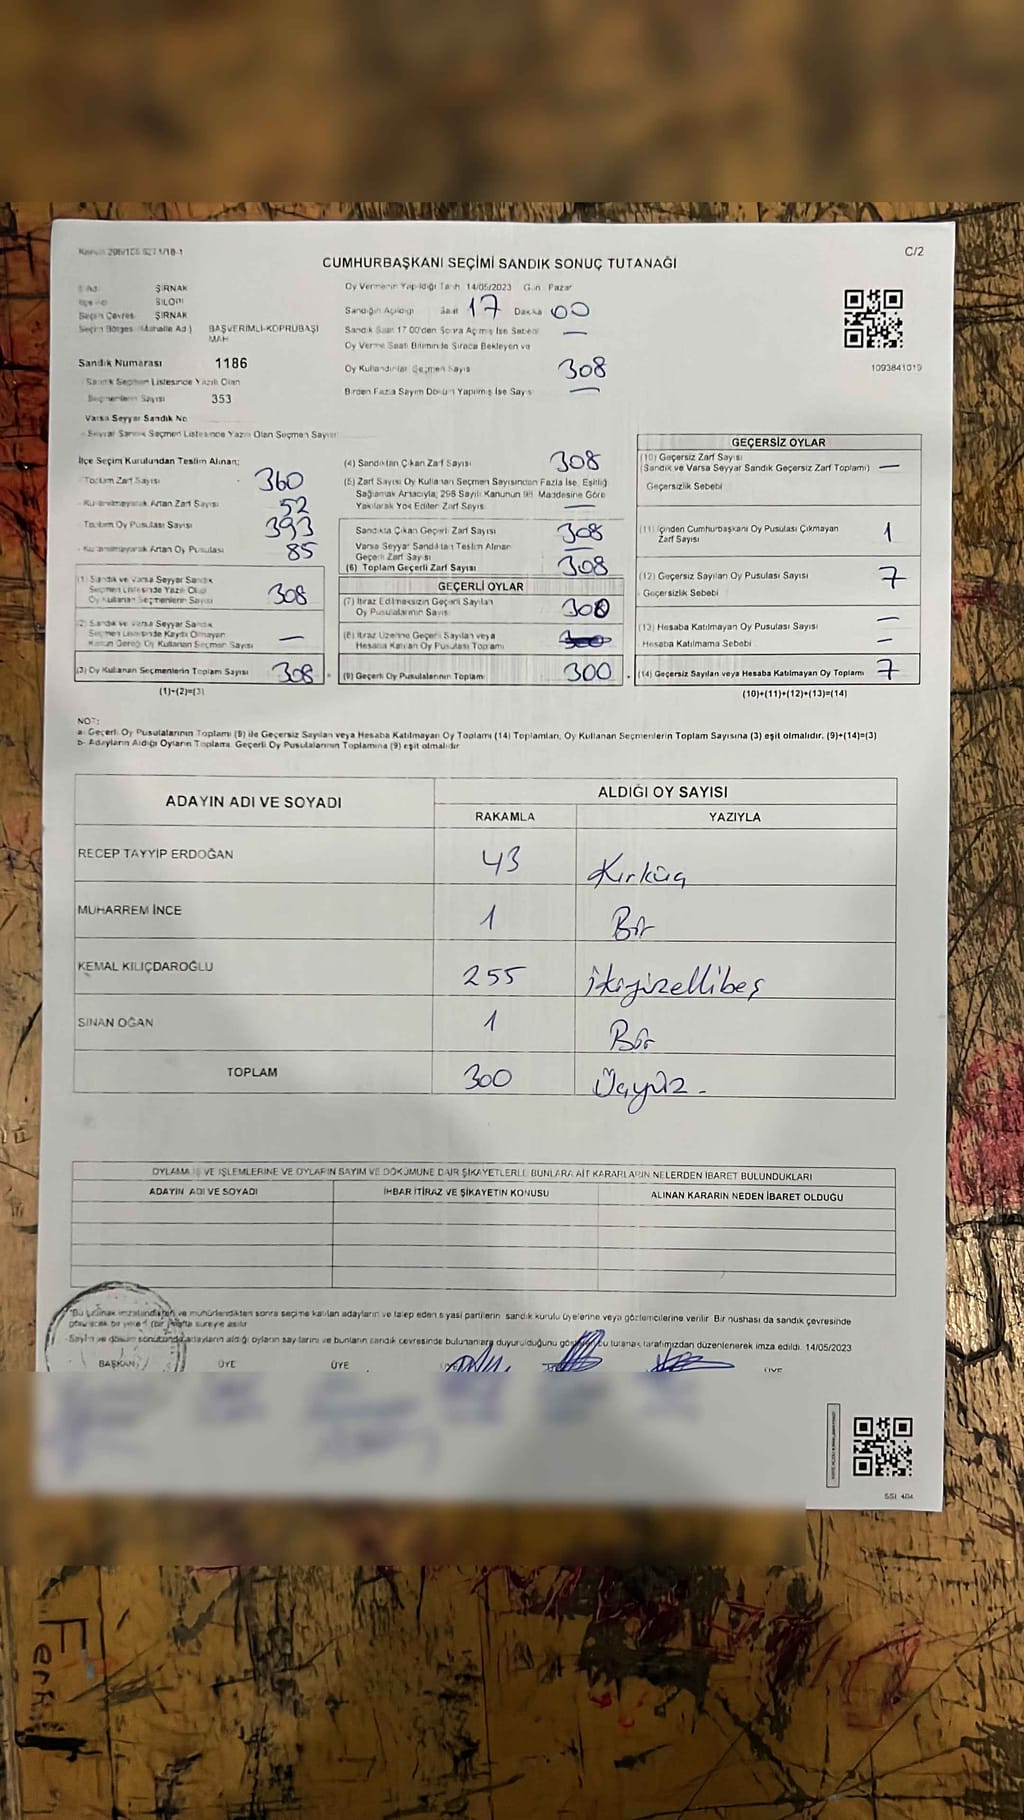 C/2
CUMHURBAŞKANI SEÇİMİ SANDIK SONUÇ TUTANAĞI
İl Adı ŞIRNAK
İlçe Adı SİLOPİ
Seçim Çevresi ŞIRNAK
Seçim Bölgesi (Mahalle Adı) BAŞVERİMLİ-KÖPRÜBAŞI MAH
Sandık Numarası 1186
Sandık Seçmen Listesinde Yazılı Olan
Seçmenlerin Sayısı 353
Varsa Seyyar Sandık No
Seyyar Sandık Seçmen Listesinde Yazılı Olan Seçmen Sayısı
Oy Vermenin Yapıldığı Tarih 14/05/2023 Gün Pazar
Sandığın Açıldığı Saat 17 Dakika 00
Sandık Saat 17.00'den Sonra Açılmış İse Sebebi —
Oy Verme Saati Bitiminde Sırada Bekleyen ve
Oy Kullandırılan Seçmen Sayısı 308
Birden Fazla Sayım Döküm Yapılmış İse Sayısı —
1093841019
İlçe Seçim Kurulundan Teslim Alınan;
Toplam Zarf Sayısı 360
Kullanılmayarak Artan Zarf Sayısı 52
Toplam Oy Pusulası Sayısı 393
Kullanılmayarak Artan Oy Pusulası 85
(1) Sandık ve Varsa Seyyar Sandık
Seçmen Listesinde Yazılı Olup
Oy Kullanan Seçmenlerin Sayısı 308
(2) Sandık ve Varsa Seyyar Sandık
Seçmen Listesinde Kayıtlı Olmayan
Kanun Gereği Oy Kullanan Seçmen Sayısı —
(3) Oy Kullanan Seçmenlerin Toplam Sayısı 308
(1)+(2)=(3)
(4) Sandıktan Çıkan Zarf Sayısı 308
(5) Zarf Sayısı Oy Kullanan Seçmen Sayısından Fazla İse, Eşitliği
Sağlamak Amacıyla, 298 Sayılı Kanunun 98. Maddesine Göre
Yakılarak Yok Edilen Zarf Sayısı —
Sandıkta Çıkan Geçerli Zarf Sayısı 308
Varsa Seyyar Sandıktan Teslim Alınan
Geçerli Zarf Sayısı —
(6) Toplam Geçerli Zarf Sayısı 308
GEÇERLİ OYLAR
(7) İtiraz Edilmeksizin Geçerli Sayılan
Oy Pusulalarının Sayısı 300
(8) İtiraz Üzerine Geçerli Sayılan veya
Hesaba Katılan Oy Pusulası Toplamı
(9) Geçerli Oy Pusulalarının Toplamı 300
GEÇERSİZ OYLAR
(10) Geçersiz Zarf Sayısı
(Sandık ve Varsa Seyyar Sandık Geçersiz Zarf Toplamı) —
Geçersizlik Sebebi
(11) İçinden Cumhurbaşkanı Oy Pusulası Çıkmayan
Zarf Sayısı 1
(12) Geçersiz Sayılan Oy Pusulası Sayısı 7
Geçersizlik Sebebi
(13) Hesaba Katılmayan Oy Pusulası Sayısı —
Hesaba Katılmama Sebebi —
(14) Geçersiz Sayılan veya Hesaba Katılmayan Oy Toplamı 7
(10)+(11)+(12)+(13)=(14)
NOT:
a- Geçerli Oy Pusulalarının Toplamı (9) ile Geçersiz Sayılan veya Hesaba Katılmayan Oy Toplamı (14) Toplamları, Oy Kullanan Seçmenlerin Toplam Sayısına (3) eşit olmalıdır. (9)+(14)=(3)
b- Adayların Aldığı Oyların Toplamı, Geçerli Oy Pusulalarının Toplamına (9) eşit olmalıdır
ADAYIN ADI VE SOYADI ALDIĞI OY SAYISI
RAKAMLA YAZIYLA
RECEP TAYYİP ERDOĞAN 43 Kırküç
MUHARREM İNCE 1 Bir
KEMAL KILIÇDAROĞLU 255 ikiyüzellibeş
SİNAN OĞAN 1 Bir
TOPLAM 300 Üçyüz.
OYLAMA İŞ VE İŞLEMLERİNE VE OYLARIN SAYIM VE DÖKÜMÜNE DAİR ŞİKAYETLERLE BUNLARA AİT KARARLARIN NELERDEN İBARET BULUNDUKLARI
ADAYIN ADI VE SOYADI İHBAR İTİRAZ VE ŞİKAYETİN KONUSU ALINAN KARARIN NEDEN İBARET OLDUĞU
*Bu tutanak imzalandıktan ve mühürlendikten sonra seçime katılan adayların ve talep eden siyasi partilerin sandık kurulu üyelerine veya gözlemcilerine verilir. Bir nüshası da sandık çevresinde
görülecek bir yere 1 (bir) hafta süreyle asılır
Sayım ve döküm sonucunda adayların aldığı oyların sayılarını ve bunların sandık çevresinde bulunanlara duyurulduğunu gösterir bu tutanak tarafımızdan düzenlenerek imza edildi. 14/05/2023
BAŞKAN ÜYE ÜYE ÜYE
SSİ 404
Ferhat